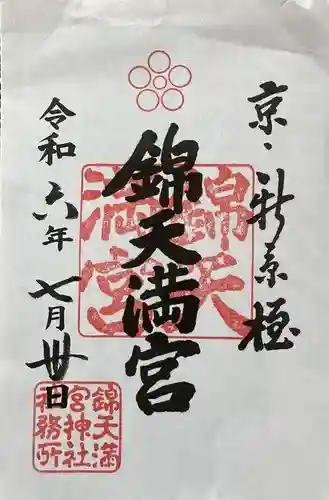 京・新京極
錦天満宮
錦天
満宮
令和六年七月卅日
錦天満
宮神社
務所